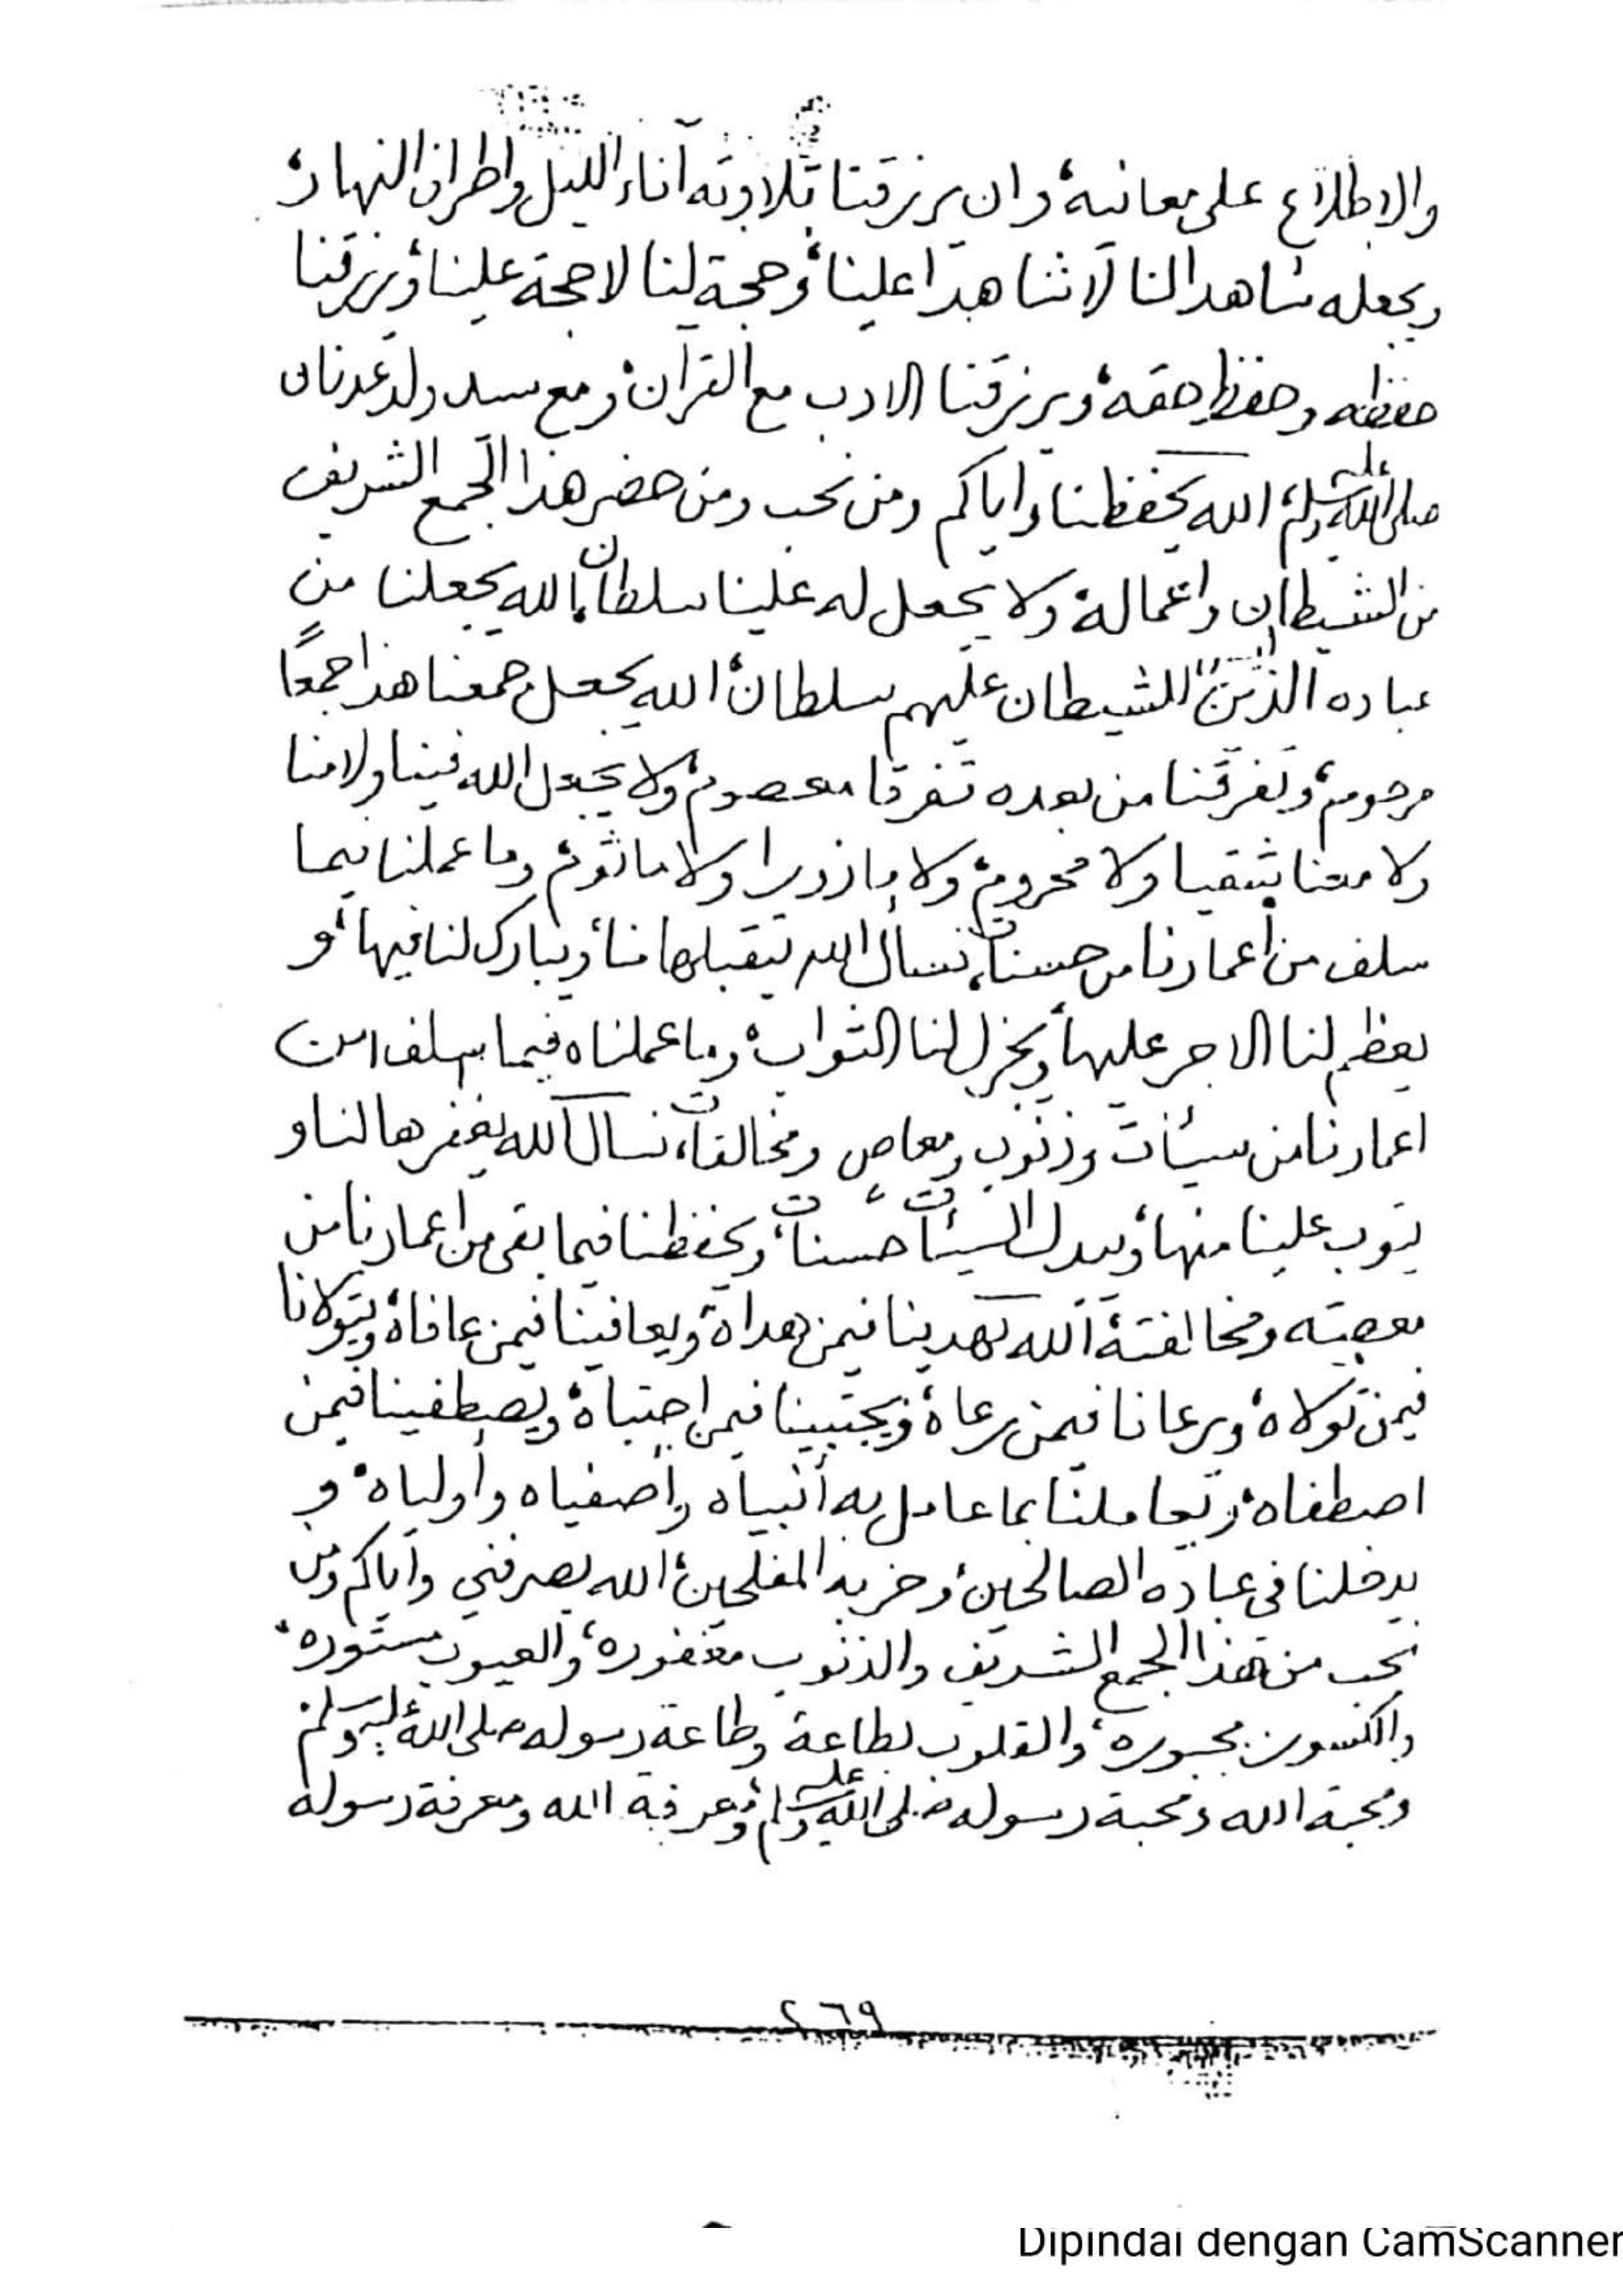 والاطلاع على معانيه، وان يرزقنا تلاوته آناء الليل واطراف النهار،
ويجعله شاهدا لنا لا شاهدا علينا، وحجة لنا لا حجة علينا، ويرزقنا
حفظه وحفظ حقه، ويرزقنا الادب مع القرآن، ومع سيد ولد عدنان
صلى الله عليه وسلم، الله يحفظنا واياكم ومن نحب ومن حضر هذا الجمع الشريف
من الشيطان واعماله، ولا يجعل له علينا سلطان، الله يجعلنا من
عباده الذين للشيطان عليهم سلطان، الله يجعل جمعنا هذا جمعًا
مرحوم، وتفرقنا من بعده تفرقا معصوم، ولا يجعل الله فينا ولا منا
ولا معنا شقيا ولا محروم، ولا مازورا ولا ماثوم، وما عملنا فيما
سلف من أعمارنا من حسنات، نسأل الله يتقبلها منا، ويبارك لنا فيها، و
يعظم لنا الاجر عليها، ويجزل لنا الثواب، وما عملناه فيما سلف من
اعمارنا من سيئات وذنوب ومعاص ومخالفات، نسال الله يغفرها لنا و
يتوب علينا منها، ويبدل السيئات حسنات، ويحفظنا فيما بقى من اعمارنا من
معصيته ومخالفته، الله يهدينا فيمن هداه، ويعافينا فيمن عافاه، ويتولانا
فيمن تولاه، ويرعانا فيمن رعاه، ويجتبينا فيمن اجتباه، ويصطفينا فيمن
اصطفاه، ويعاملنا بما عامل به أنبياه وأصفياه وأولياه، و
يدخلنا في عباده الصالحين، وحزبه المفلحين، الله يصرفني واياكم ومن
نحب من هذا الجمع الشريف والذنوب مغفوره، والعيوب مستوره،
والكسور مجبوره، والقلوب لطاعة وطاعة رسوله صلى الله عليه وسلم
ومحبة الله ومحبة رسوله صلى الله عليه وسلم، ومعرفة الله ومعرفة رسوله
٢٦٩
Dipindai dengan CamScanner